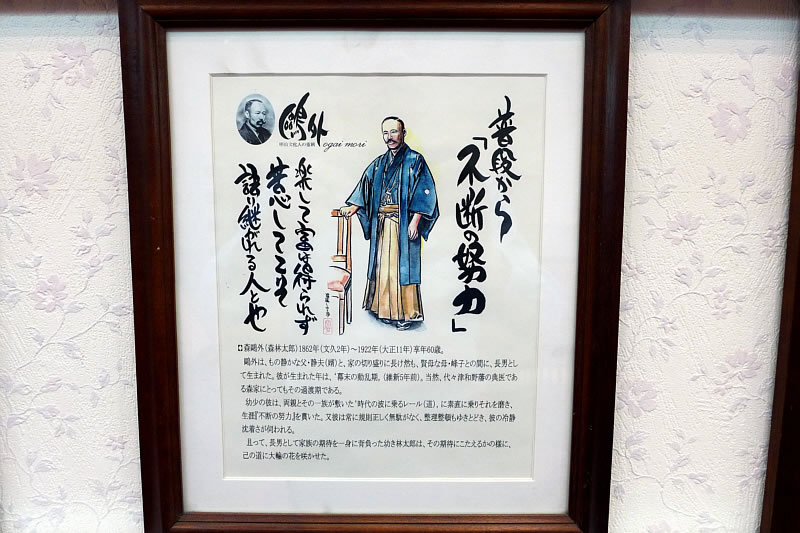 鷗外
ogai mori
普段から
「不断の努力」
楽して富は得られず
苦心してこそ
語り継がれる人とや
森鷗外(森林太郎)1862年(文久2年)～1922年(大正11年)享年60歳。
鷗外は、もの静かな父・静夫(靖)と、家の切り盛りに長け然も、賢母な母・峰子との間に、長男とし
て生まれた。彼が生まれた年は、"幕末の動乱期。(維新5年前)。当然、代々津和野藩の典医であ
る森家にとってもその過渡期である。
幼少の彼は、両親とその一族が敷いた"時代の波に乗るレール(道)、に素直に乗りそれを磨き、
生涯『不断の努力』を貫いた。又彼は常に規則正しく無駄がなく、整理整頓もゆきとどき、彼の冷静
沈着さが伺われる。
且って、長男として家族の期待を一身に背負った幼き林太郎は、その期待にこたえるかの様に、
己の道に大輪の花を咲かせた。